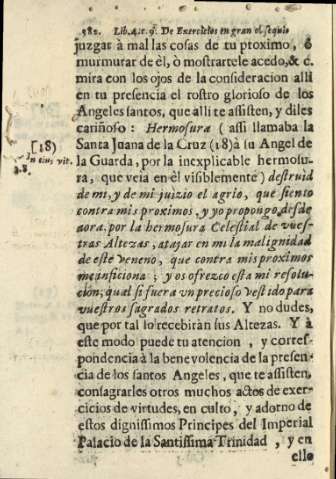 582. Lib.4.c.9. De Exercicios en gran el sequio
juzgar à mal las cosas de tu proximo, ó
murmurar de èl, ò mostrartele acedo, & c.
mira con los ojos de la consideracion alli
en tu presencia el rostro glorioso de los
Angeles santos, que alli te assisten, y diles
cariñoso: Hermosura (assi llamaba la
Santa Juana de la Cruz (18) à su Angel de
la Guarda, por la inexplicable hermosu-
ra, que veia en èl visiblemente) destruid
de mi, y de mi juizio el agrio, que siento
contra mis proximos, y yo propongo desde
aora, por la hermosura Celestial de vues-
tras Altezas, atajar en mi la malignidad
de este veneno, que contra mis proximos
me inficiona; y os ofrezco esta mi resolu-
cion, qual si fuera un precioso vestido para
vuestros sagrados retratos. Y no dudes,
que por tal lo recebiràn sus Altezas. Y à
este modo puede tu atencion, y corres-
pondencia à la benevolencia de la presen-
cia de los santos Angeles, que te assisten,
consagrarles otros muchos actos de exer-
cicios de virtudes, en culto, y adorno de
estos dignissimos Principes del Imperial
Palacio de la Santissima Trinidad, y en
ello
[18)
In eius vit.